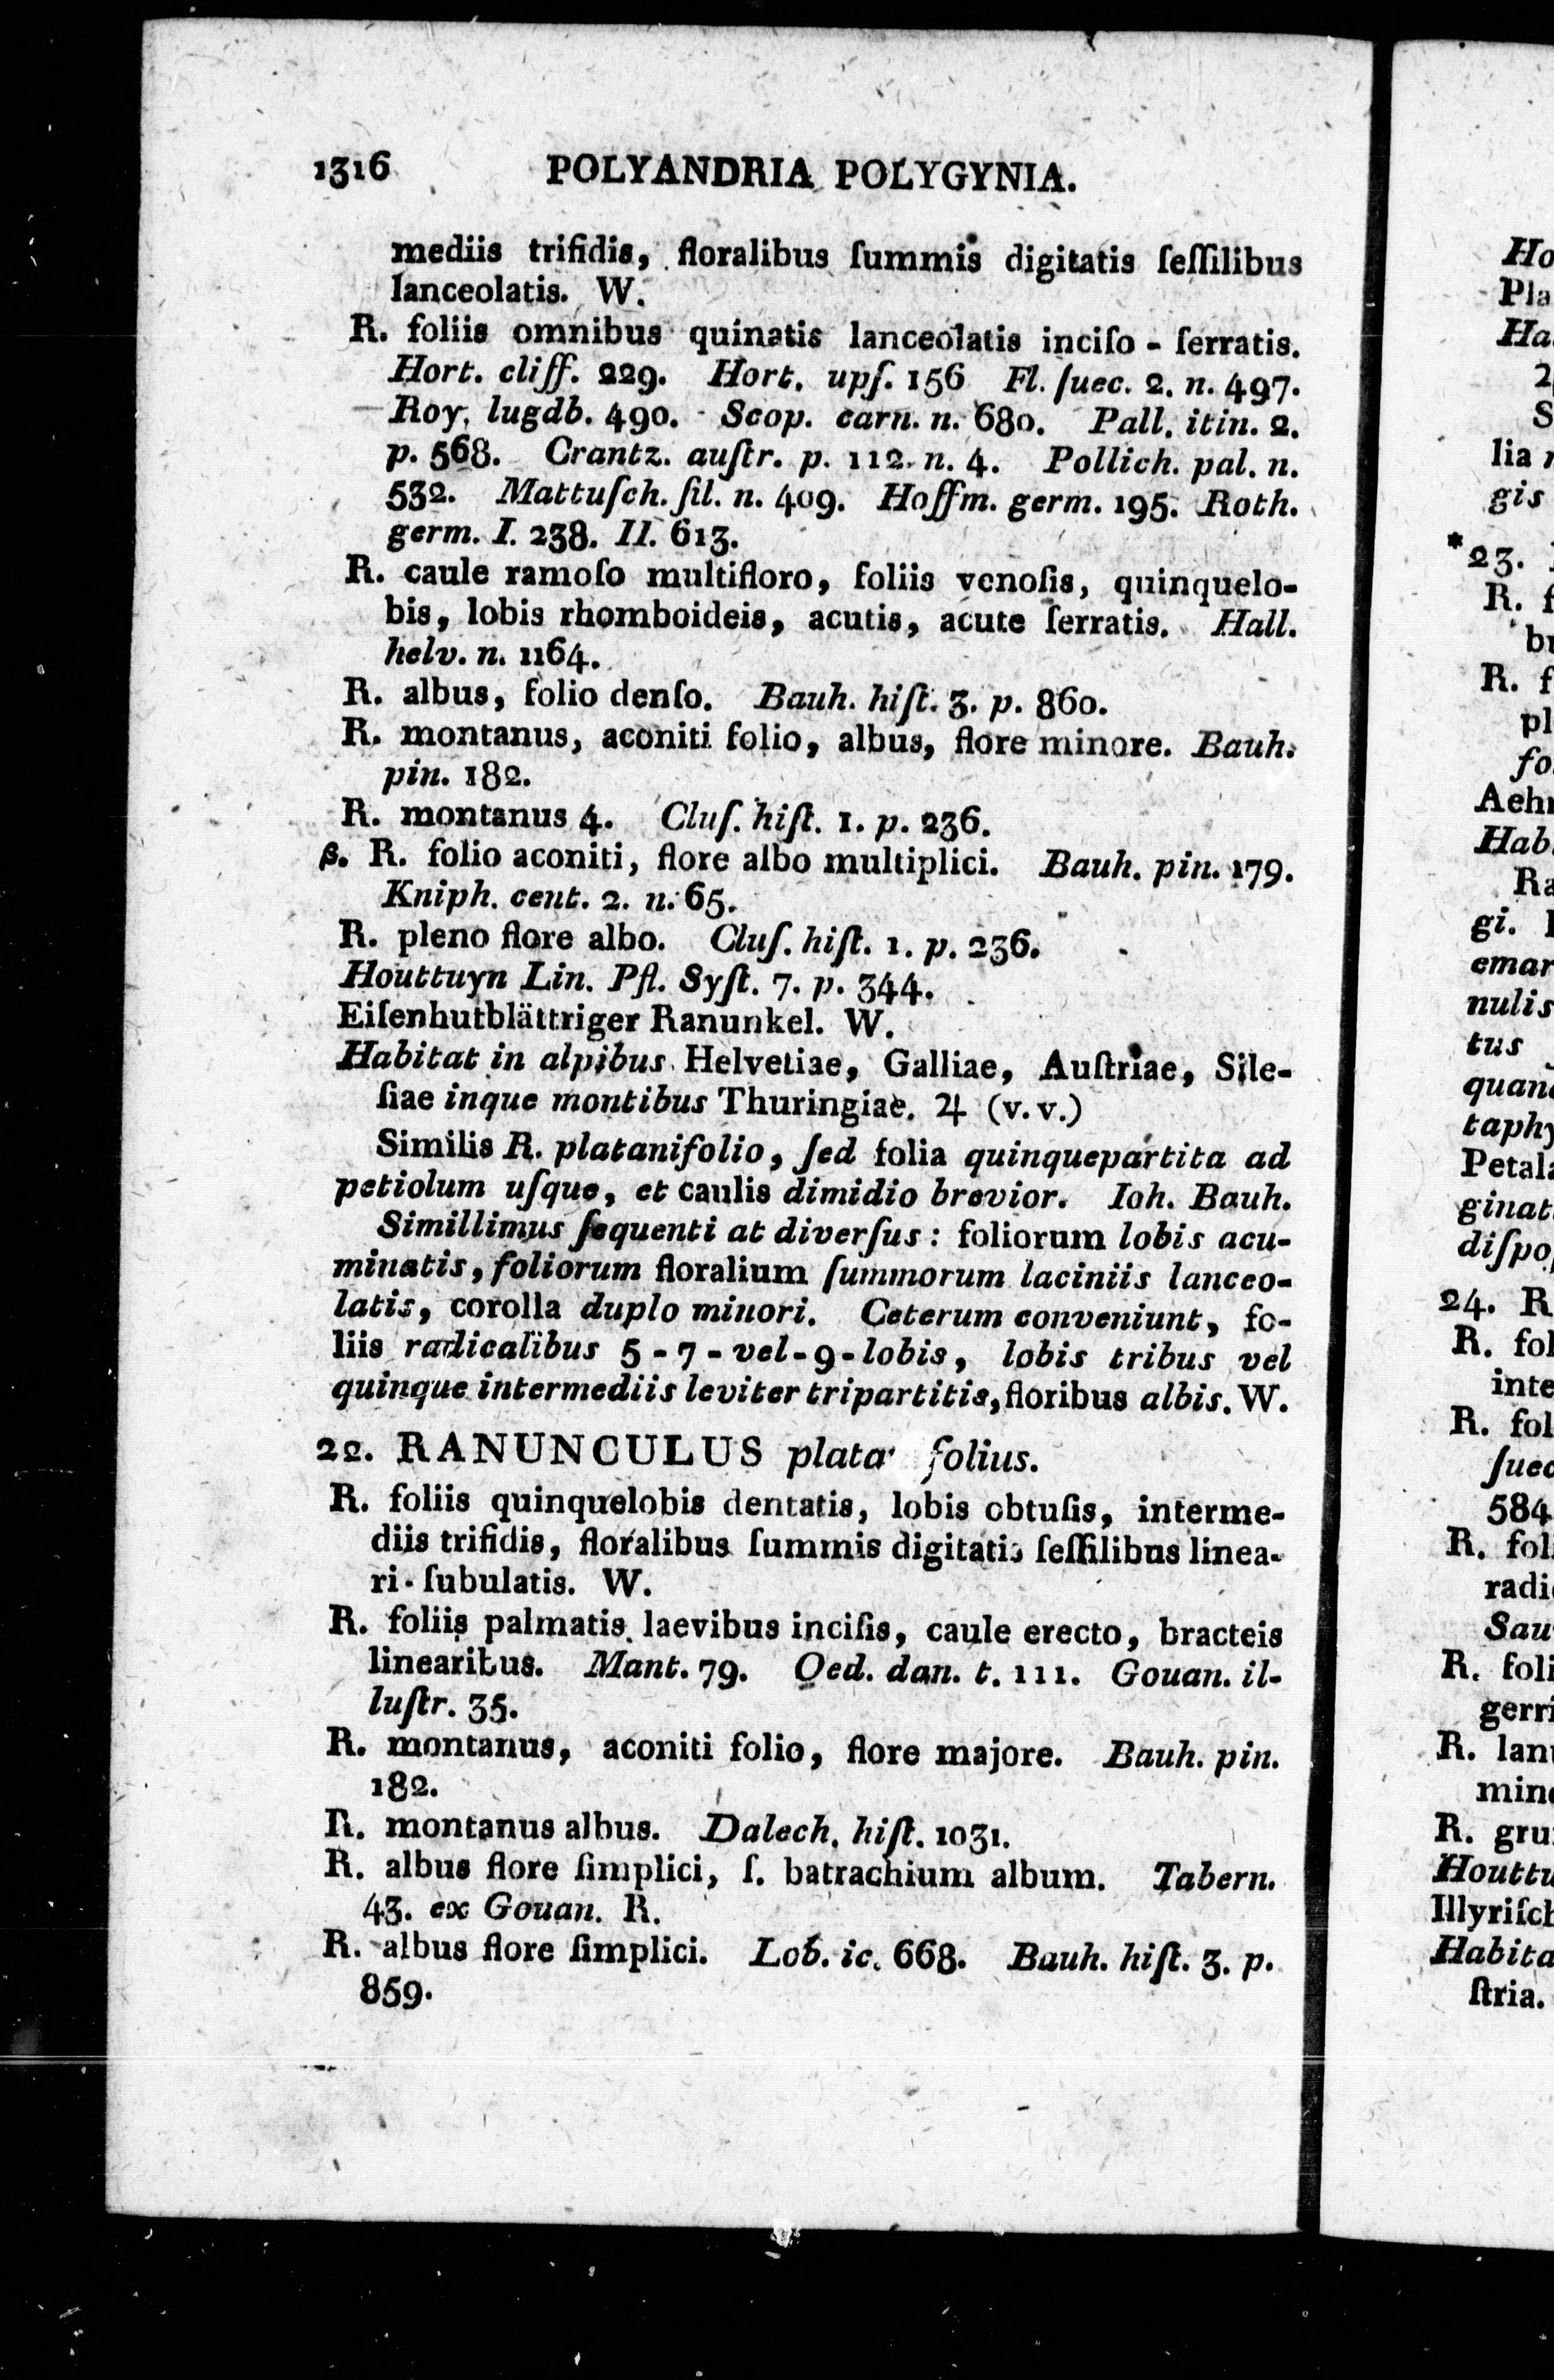 1316 POLYANDRIA POLYGYNIA.
mediis trifidis, floralibus ſummis digitatis ſeſſilibus
lanceolatis. W.
R. foliis omnibus quinatis lanceolatis inciſo - ſerratis.
Hort. cliff. 229. Hort. upſ. 156 Fl. ſuec. 2. n. 497.
Roy. lugdb. 490. Scop. carn. n. 680. Pall. itin. 2.
p. 568. Crantz. auſtr. p. 112. n. 4. Pollich. pal. n.
532. Mattuſch. ſil. n. 409. Hoffm. germ. 195. Roth.
germ. I. 238. II. 613.
R. caule ramoſo multifloro, foliis venoſis, quinquelo-
bis, lobis rhomboideis, acutis, acute ſerratis. Hall.
helv. n. 1164.
R. albus, folio denſo. Bauh. hiſt. 3. p. 860.
R. montanus, aconiti folio, albus, flore minore. Bauh.
pin. 182.
R. montanus 4. Cluſ. hiſt. 1. p. 236.
β. R. folio aconiti, flore albo multiplici. Bauh. pin. 179.
Kniph. cent. 2. n. 65.
R. pleno flore albo. Cluſ. hiſt. 1. p. 236.
Houttuyn Lin. Pfl. Syſt. 7. p. 344.
Eiſenhutblättriger Ranunkel. W.
Habitat in alpibus Helvetiae, Galliae, Auſtriae, Sile-
ſiae inque montibus Thuringiae. ♃ (v. v.)
Similis R. platanifolio, ſed folia quinquepartita ad
petiolum uſque, et caulis dimidio brevior. Ioh. Bauh.
Simillimus ſequenti at diverſus: foliorum lobis acu-
minatis, foliorum floralium ſummorum laciniis lanceo-
latis, corolla duplo minori. Ceterum conveniunt, fo-
liis radicalibus 5 - 7 - vel - 9 - lobis, lobis tribus vel
quinque intermediis leviter tripartitis, floribus albis. W.
22. RANUNCULUS plata folius.
R. foliis quinquelobis dentatis, lobis obtuſis, interme-
diis trifidis, floralibus ſummis digitatis ſeſſilibus linea-
ri-ſubulatis. W.
R. foliis palmatis laevibus inciſis, caule erecto, bracteis
linearibus. Mant. 79. Oed. dan. t. 111. Gouan. il-
luſtr. 35.
R. montanus, aconiti folio, flore majore. Bauh. pin.
182.
R. montanus albus. Dalech. hiſt. 1031.
R. albus flore ſimplici, ſ. batrachium album. Tabern.
43. ex Gouan. R.
R. albus flore ſimplici. Lob. ic. 668. Bauh. hiſt. 3. p.
859.
Ho
Pla
Ha
2
S
lia
gis
*23.
R. f
br
R. f
pl
fo
Aehn
Hab
Ra
gi.
emar
nulis
tus
quan
taphy
Petala
ginat
diſpo
24. R
R. fol
inte
R. fol
ſuec
584
R. fol
radi
Sau
R. foli
gerri
R. lan
min
R. gru
Houttu
Illyriſch
Habita
ſtria.